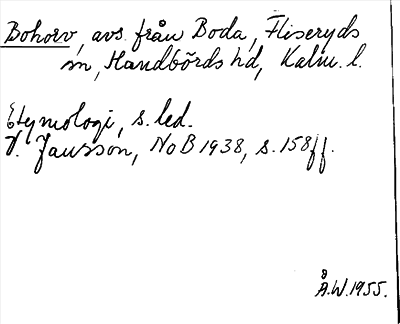 Bohorv, avs. från Boda, Fliseryds
sn, Handbörds hd, Kalm. l.
Etymologi, s. led.
V. Jansson, NoB 1938, s. 158 ff.
Å.W. 1955.